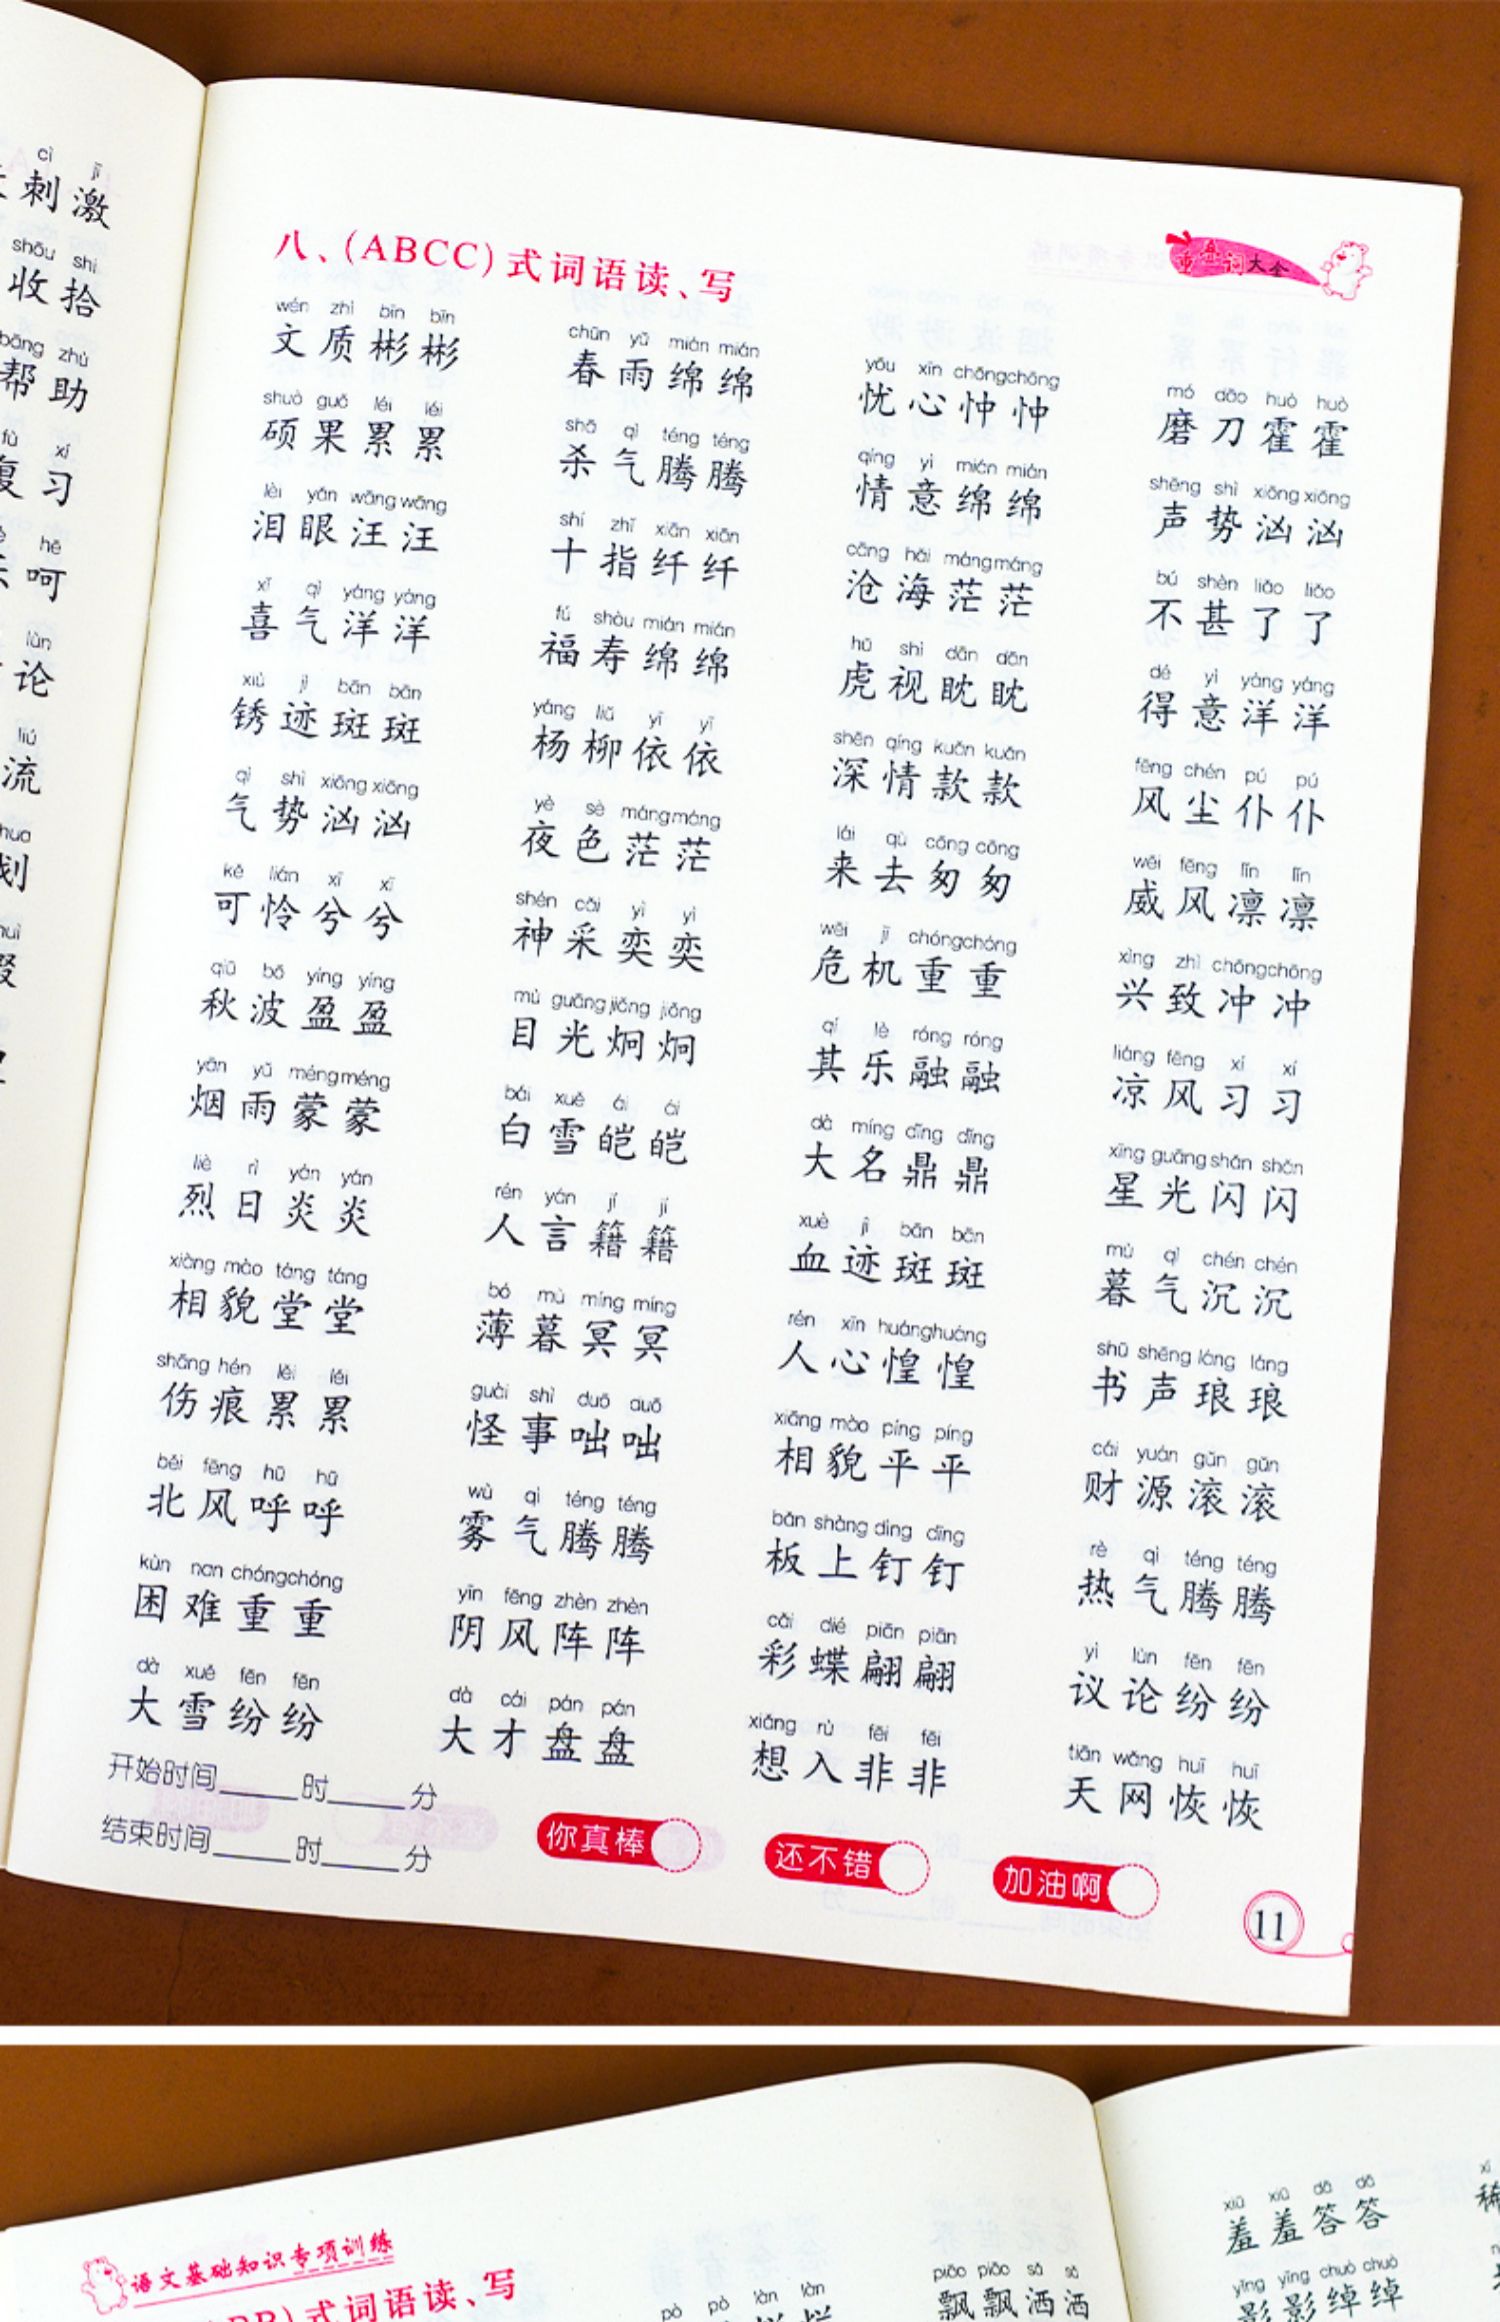 cì jī
刺激
shōu shi
收拾
bāng zhù
帮助
fù xí
复习
hē
呵
lùn
论
liú
流
huà
划
重叠词大全
八、(ABCC)式词语读、写
wén zhì bīn bīn
文质彬彬
shuò guǒ léi léi
硕果累累
lèi yǎn wāng wāng
泪眼汪汪
xǐ qì yáng yáng
喜气洋洋
xiù jì bān bān
锈迹斑斑
qì shì xiōng xiōng
气势汹汹
kě lián xī xī
可怜兮兮
qiū bō yíng yíng
秋波盈盈
yān yǔ méng méng
烟雨蒙蒙
liè rì yán yán
烈日炎炎
xiàng mào táng táng
相貌堂堂
shāng hén léi léi
伤痕累累
běi fēng hū hū
北风呼呼
kùn nan chóng chóng
困难重重
dà xuě fēn fēn
大雪纷纷
chūn yǔ mián mián
春雨绵绵
shā qì téng téng
杀气腾腾
shí zhǐ xiān xiān
十指纤纤
fú shòu mián mián
福寿绵绵
yáng liǔ yī yī
杨柳依依
yè sè máng máng
夜色茫茫
shén cǎi yì yì
神采奕奕
mù guāng jiǒng jiǒng
目光炯炯
bái xuě ái ái
白雪皑皑
rén yán jí jí
人言籍籍
bó mù míng míng
薄暮冥冥
guài shì duō duō
怪事咄咄
wù qì téng téng
雾气腾腾
yīn fēng zhèn zhèn
阴风阵阵
dà cái pán pán
大才盘盘
yōu xīn chōng chōng
忧心忡忡
qíng yì mián mián
情意绵绵
cāng hǎi máng máng
沧海茫茫
hǔ shì dān dān
虎视眈眈
shēn qíng kuǎn kuǎn
深情款款
lái qù cōng cōng
来去匆匆
wēi jī chóng chóng
危机重重
qí lè róng róng
其乐融融
dà míng dǐng dǐng
大名鼎鼎
xuè jì bān bān
血迹斑斑
rén xīn huáng huáng
人心惶惶
xiàng mào píng píng
相貌平平
bǎn shàng dìng dīng
板上钉钉
cǎi dié piān piān
彩蝶翩翩
xiǎng rù fēi fēi
想入非非
mó dāo huò huò
磨刀霍霍
shēng shì xiōng xiōng
声势汹汹
bú shèn liǎo liǎo
不甚了了
dé yì yáng yáng
得意洋洋
fēng chén pú pú
风尘仆仆
wēi fēng lǐn lǐn
威风凛凛
xìng zhì chōng chōng
兴致冲冲
liáng fēng xí xí
凉风习习
xīng guāng shǎn shǎn
星光闪闪
mù qì chén chén
暮气沉沉
shū shēng láng láng
书声琅琅
cái yuán gǔn gǔn
财源滚滚
rè qì téng téng
热气腾腾
yì lùn fēn fēn
议论纷纷
tiān wǎng huī huī
天网恢恢
开始时间____时____分
结束时间____时____分
你真棒
还不错
加油啊
11
语文基础知识专项训练
式词语读、写
pò pò làn làn
piāo piāo sǎ sǎ
飘飘洒洒
xiū xiū dā dā
羞羞答答
yǐng yǐng chuò chuò
影影绰绰